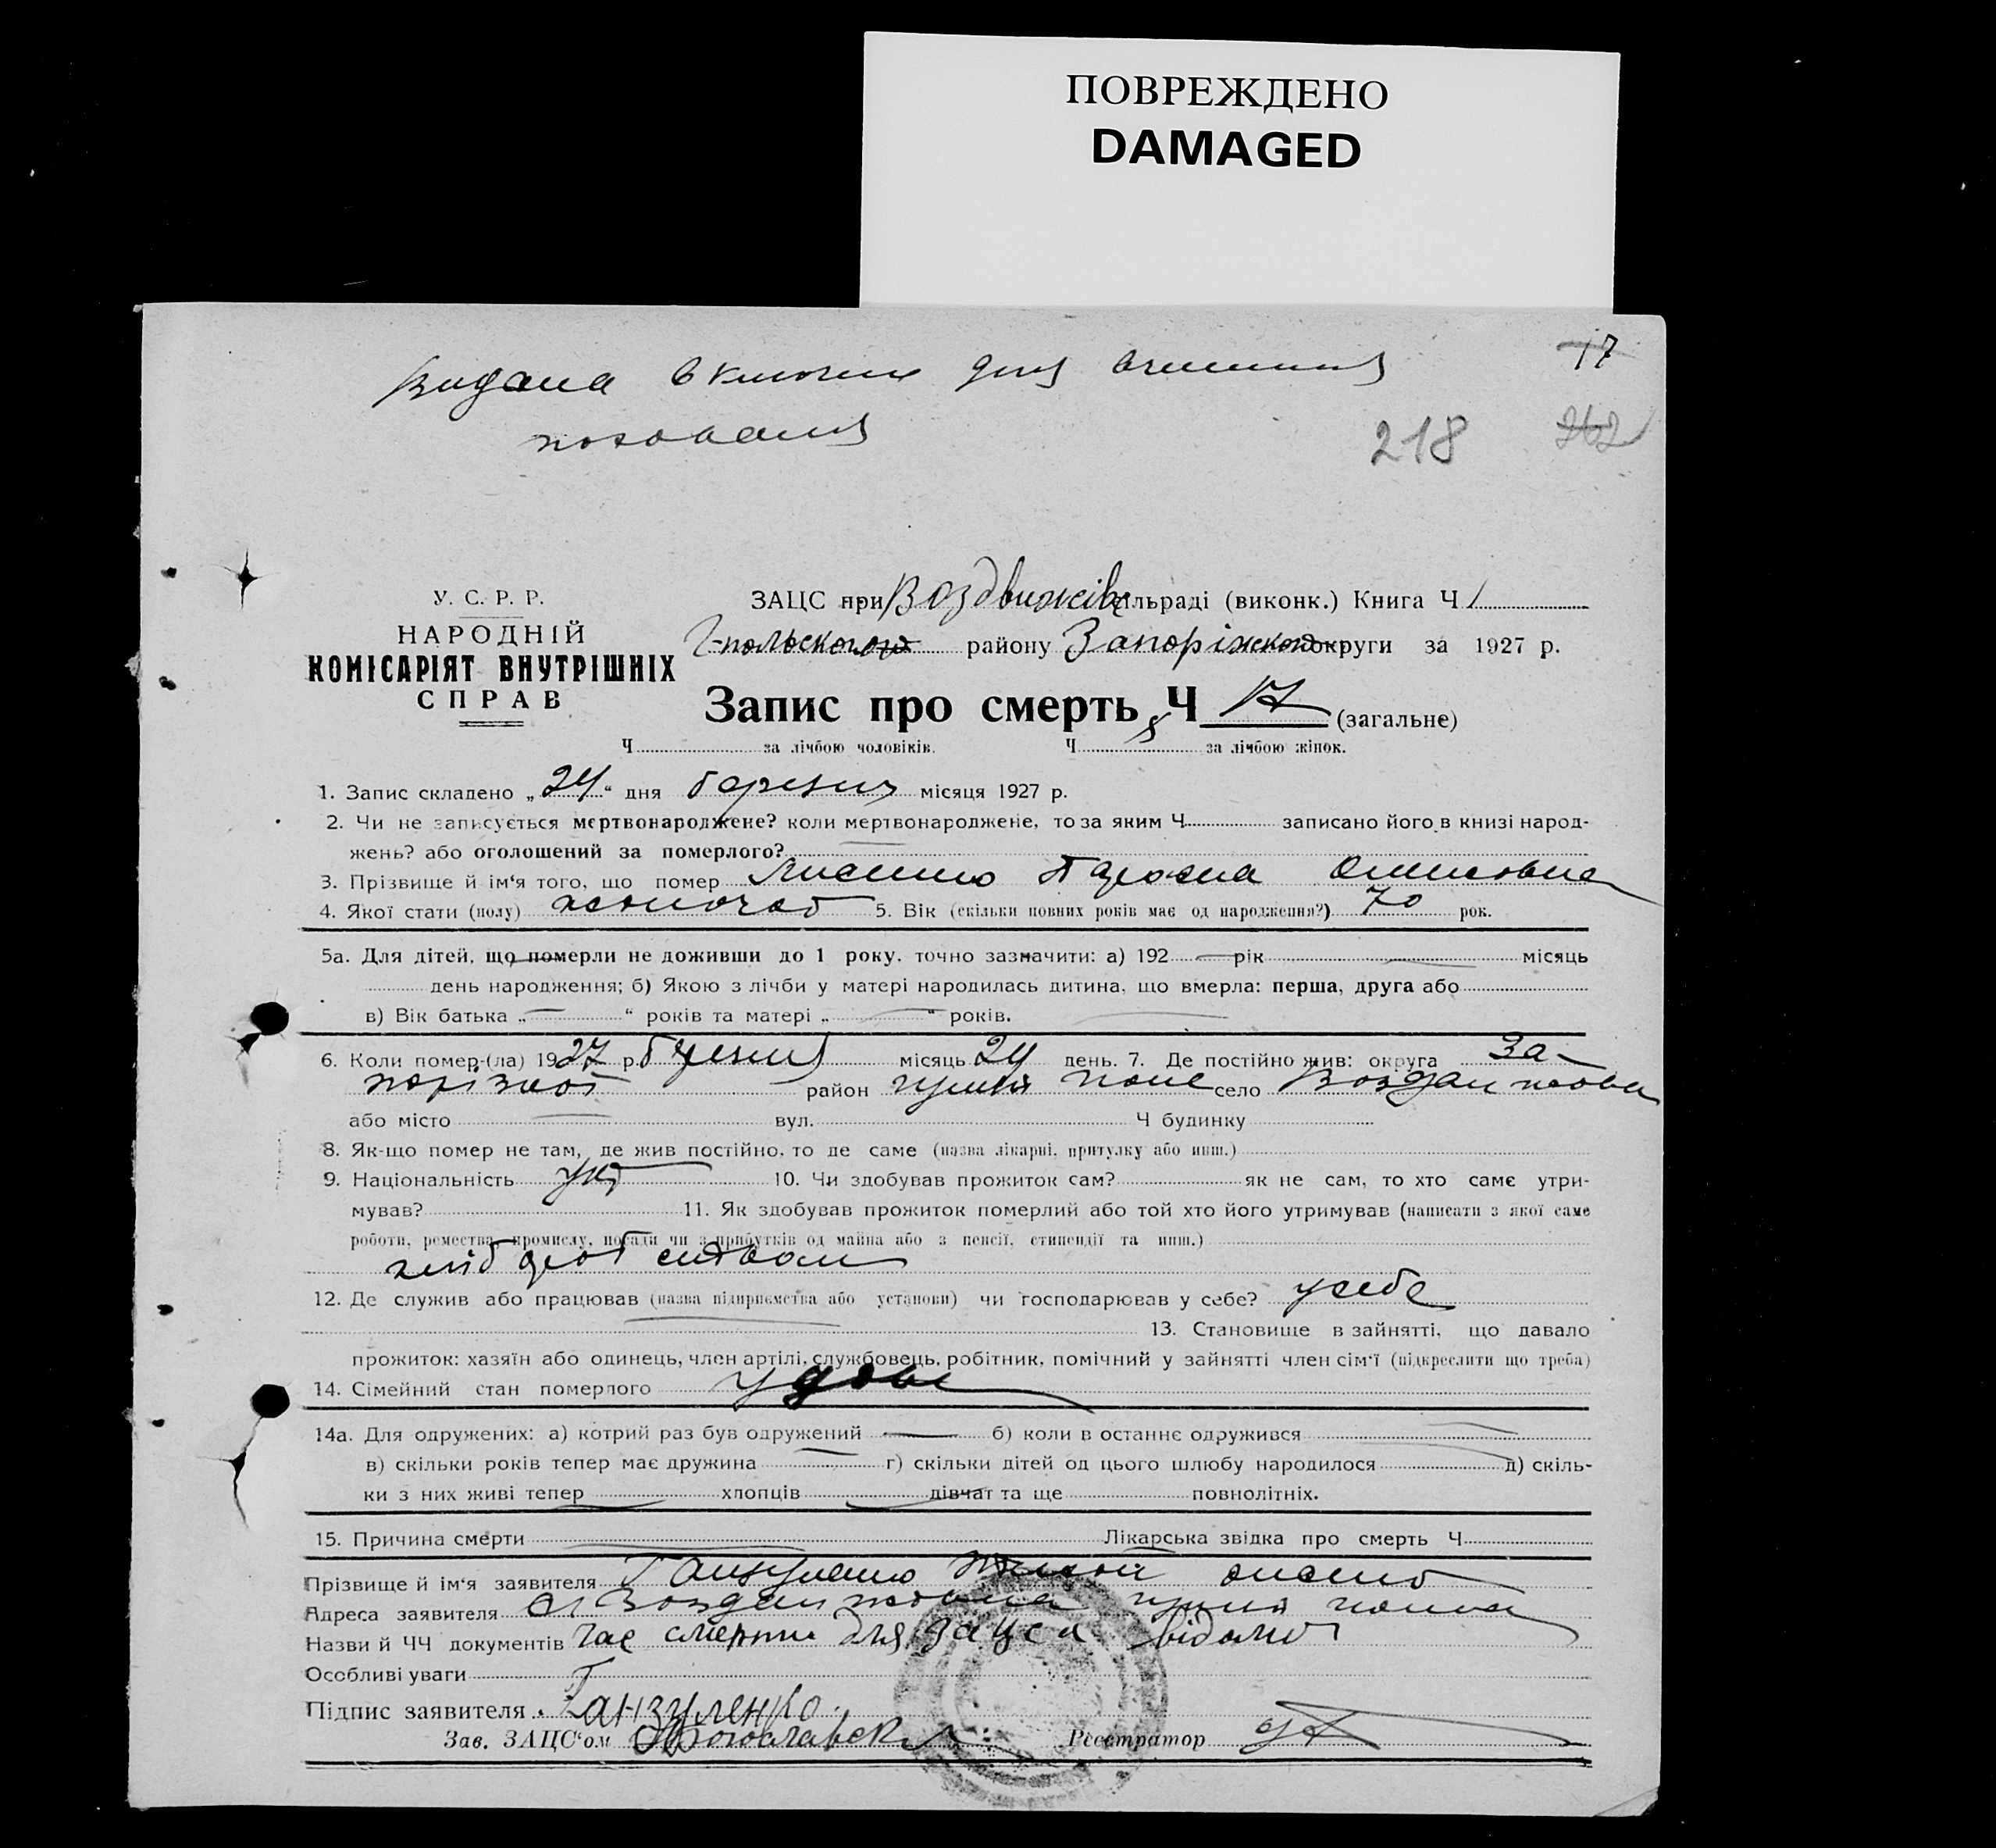 ПОВРЕЖДЕНО
DAMAGED
17
Видана для
218 262
У. С. Р. Р.
НАРОДНІЙ
КОМІСАРІЯТ ВНУТРІШНІХ
СПРАВ
ЗАЦС при Воздвижівс сільраді (виконк.) Книга Ч 1
Г-польского району Запоріжскои округи за 1927 р.
Запис про смерть, Ч 17 (загальне)
Ч за лічбою чоловіків. Ч 8 за лічбою жінок.
1. Запис складено „24“ дня березня місяця 1927 р.
2. Чи не записується мертвонароджене? коли мертвонароджене, то за яким Ч записано його в книзі народ-
жень? або оголошений за померлого?
3. Прізвище й ім‘я того, що помер
4. Якої стати (полу) 5. Вік (скільки повних років має од народження?) 70 рок.
5а. Для дітей, що померли не доживши до 1 року. точно зазначити: а) 192 рік місяць
день народження; б) Якою з лічби у матері народилась дитина, що вмерла: перша, друга або
в) Вік батька „ “ років та матері „ “ років.
6. Коли помер-(ла) 1927 р. березня місяць 24 день. 7. Де постійно жив: округа За-
порізкої район село
або місто вул. Ч будинку
8. Як-що помер не там, де жив постійно, то де саме (назва лікарні, притулку або инш.)
9. Національність укр 10. Чи здобував прожиток сам? як не сам, то хто саме утри-
мував? 11. Як здобував прожиток померлий або той хто його утримував (написати з якої саме
роботи, ремества, промислу, посади чи з прибутків од майна або з пенсії, стипендії та инш.)
хліб
12. Де служив або працював (назва підприємства або установи) чи господарював у себе? у себе
13. Становище в зайнятті, що давало
прожиток: хазяїн або одинець, член артілі, службовець, робітник, помічний у зайнятті член сім‘ї (підкреслити що треба)
14. Сімейний стан померлого удова
14а. Для одружених: а) котрий раз був одружений б) коли в останнє одружився
в) скільки років тепер має дружина г) скільки дітей од цього шлюбу народилося д) скіль-
ки з них живі тепер хлопців дівчат та ще повнолітніх.
15. Причина смерти Лікарська звідка про смерть Ч
Прізвище й ім‘я заявителя Ганзуленко
Адреса заявителя
Назви й ЧЧ документів час смерти для зацса відомо
Особливі уваги
Підпис заявителя Ганзуленко
Зав. ЗАЦС‘ом Реєстратор